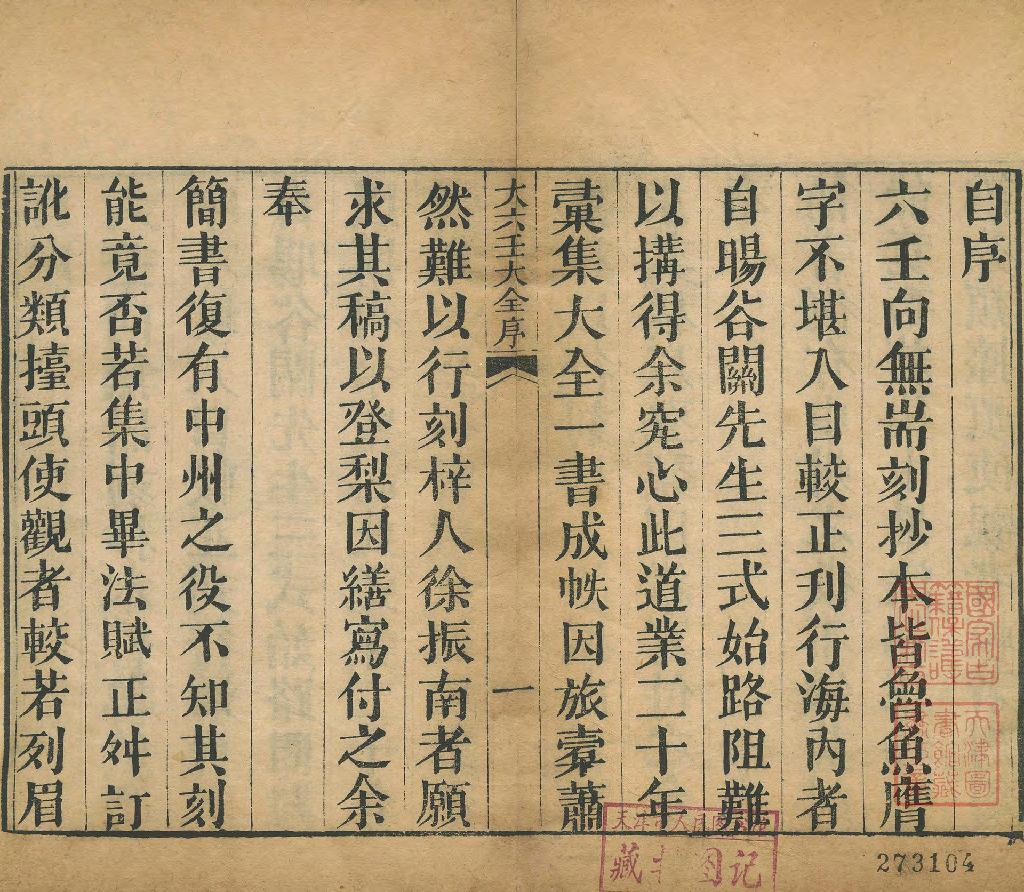 自序
六壬向無耑刻抄本皆魯魚鴈
字不堪入目較正刋行海內者
自暘谷關先生三式始路阻難
以搆得余究心此道業二十年
彙集大全一書成帙因旅橐蕭
大六壬大全序
一
然難以行刻梓人徐振南者願
求其稿以登梨因繕寫付之余
奉
簡書復有中州之役不知其刻
能竟否若集中畢法賦正舛訂
訛分類擡頭使觀者較若列眉
國家古籍保護
天津圖書館藏
天津市人民图書館
藏书图记
273104